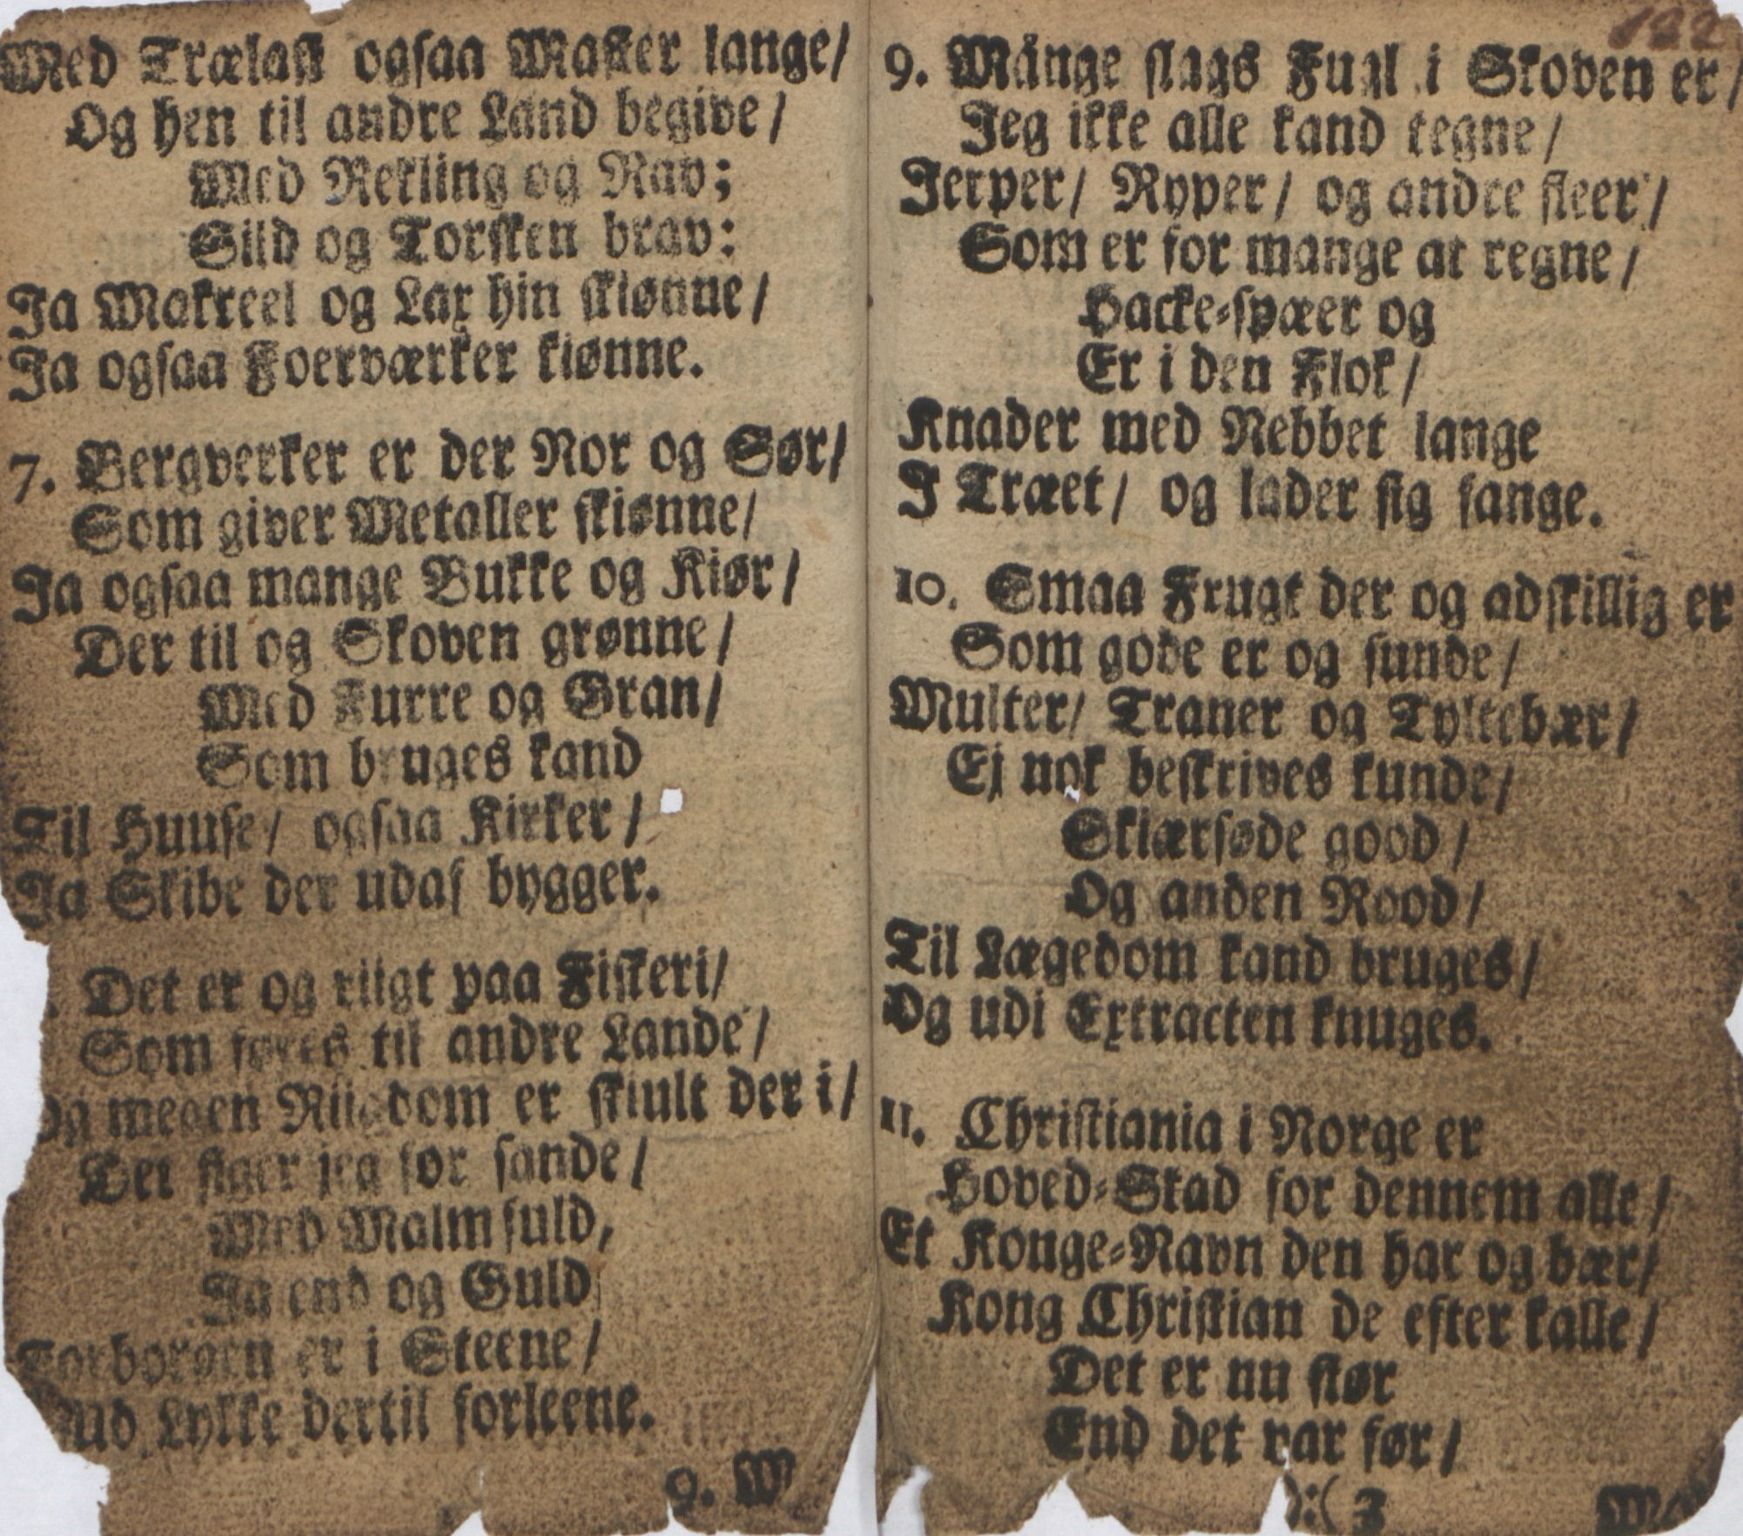 Med Trælast ogsaa Master lange/
Og hen til andre Land begive/
Med Rekling og Rav;
Sild og Torsken brav:
Ja Makreel og Lax hin skiønne/
Ja ogsaa Foerværker kiønne.
7. Bergverker er der Nor og Sør/
Som giver Metaller skiønne/
Ja ogsaa mange Bukke og Kiør/
Der til og Skoven grønne/
Med Furre og Gran/
Som bruges kand
Til Huuse/ ogsaa Kirker/
Ja Skibe der udaf bygger.
Det er og riigt paa Fiskeri/
Som føres til andre Lande/
Og megen Riigdom er skiult der i/
Det siger jeg for sande/
Med Malm fuld,
Ja end og Guld
Forborgen er i Steene/
Gud Lykke dertil forleene.
9. M
122
9. Mange slags Fugl i Skoven er/
Jeg ikke alle kand tegne/
Jerper/ Ryper/ og andre fleer/
Som er for mange at regne/
Hacke-spæer og
Er i den Flok/
Knader med Nebbet lange
I Træet/ og lader sig fange.
10. Smaa Frugt der og adskillig er
Som gode er og sunde/
Multer/ Traner og Tyltebær/
Ej nok beskrives kunde/
Skiærsøde good/
Og anden Rood/
Til Lægedom kand bruges/
Og udi Extracten knuges.
11. Christiania i Norge er
Hoved-Stad for dennem alle/
Et Konge-Navn den har og bær/
Kong Christian de efter kalle/
Det er nu stør
End det var før/
):( 3